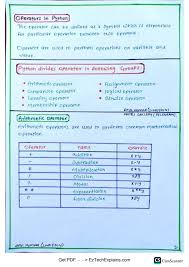 Operators in Python
The operator can be defined as a symbol which is responsible
for particular operation between two operands.
Operators are used to perform operations on variables and
values.
Python divides operators in following groups:
• Arithmetic operator
• Assignment operator
• Comparison operator
• Logical operator
• Identity operator
• Bitwise operator
• Membership operator
Arithmetic operator
Arithmetic operators are used to perform common mathematical
operation.
Operator Name Example
+ Addition x+y
- Subtraction x-y
* Multiplication x*y
/ Division x/y
% Modulus x%y
** Exponentiation x**y
// Floor division x//y
Get PDF - - -> EzTechExplains.com
CamScanner